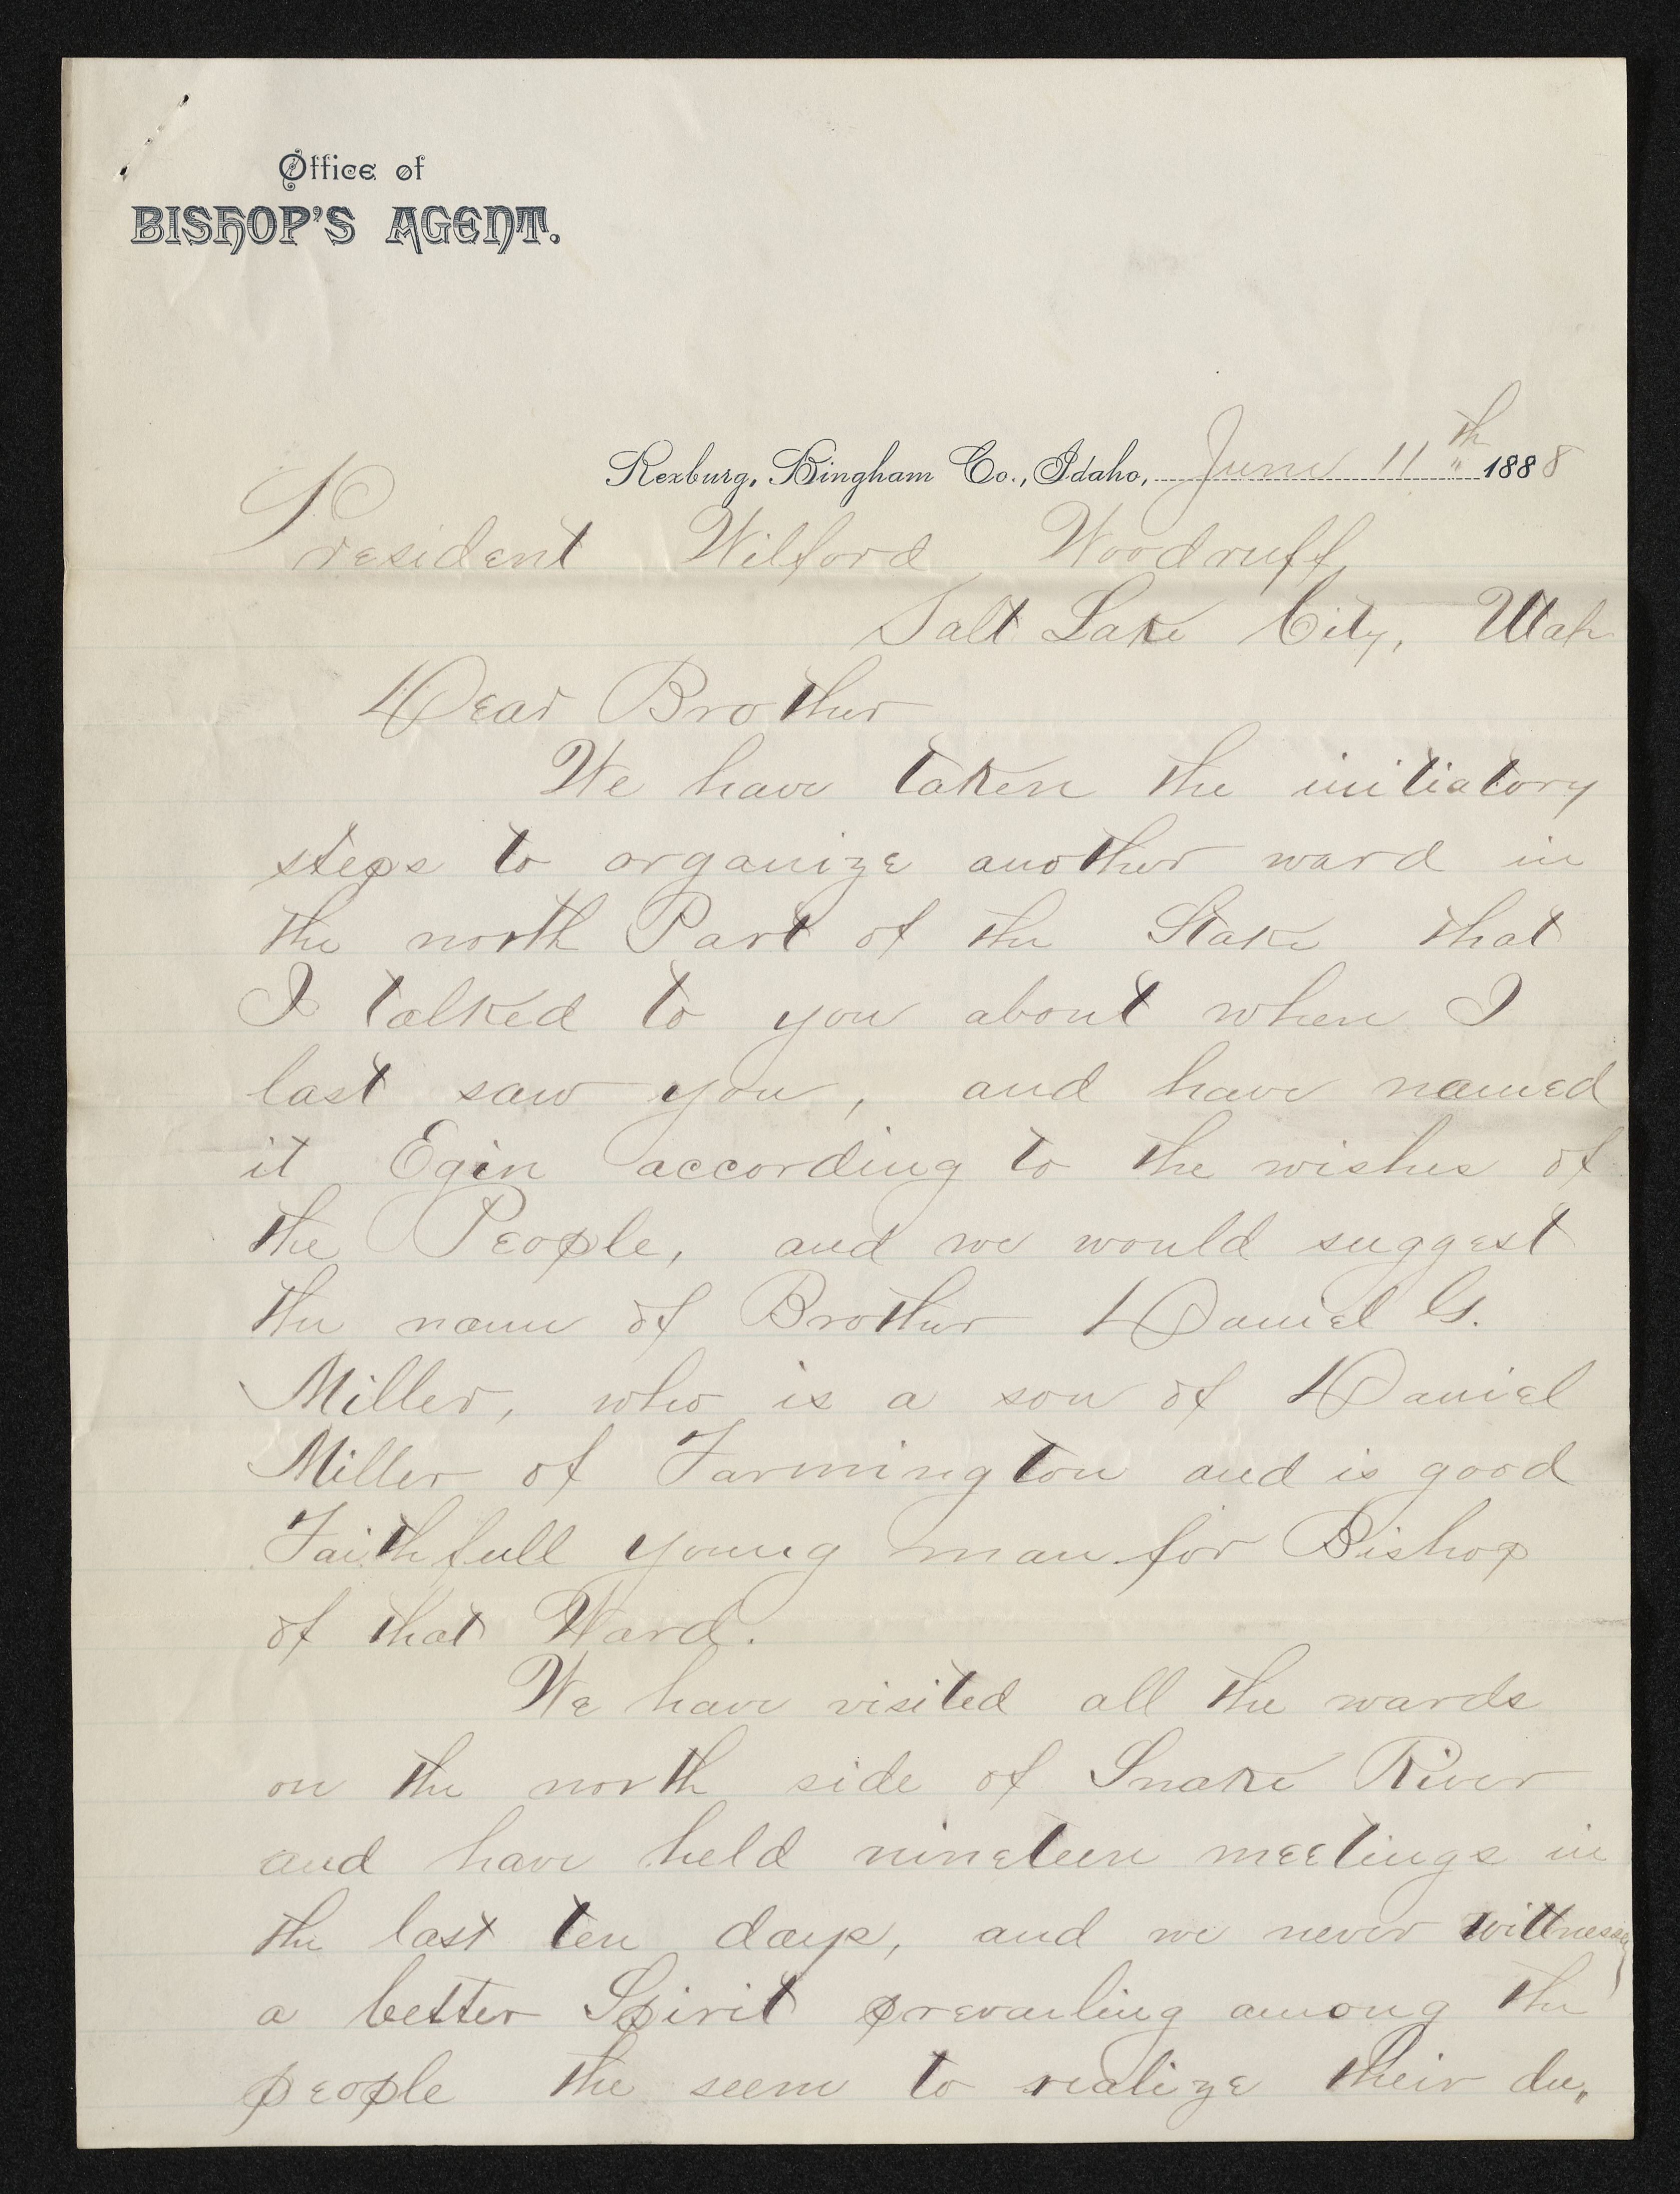 Office of
BISHOP'S AGENT.
Rexburg, Bingham Co., Idaho, June 11th 1888
President Wilford Woodruff
Salt Lake City, Utah
Dear Brother
We have taken the initiatory
steps to organize another ward in
the north Part of the Stake that
I talked to you about when I
last saw you, and have named
it Egin according to the wishes of
the People, and we would suggest
the name of Brother Daniel G.
Miller, who is a son of Daniel
Miller of Farmington and is good
Faithfull young man for Bishop
of that Ward.
We have visited all the wards
on the north side of Snake River
and have held nineteen meetings in
the last ten days, and we never
a better Spirit prevailing among the
people the seem to realize their du„